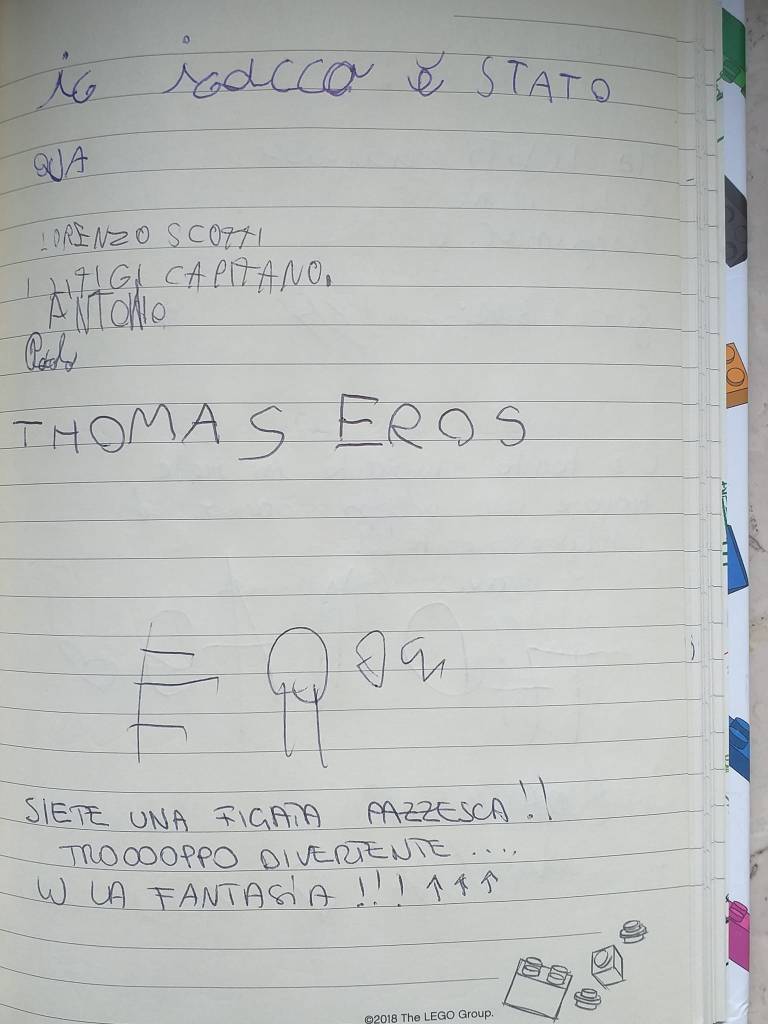 io iacco è STATO
QUA
LORENZO SCOTTI
CAPITANO.
ANTONIO
THOMAS EROS
E
SIETE UNA FIGATA PAZZESCA!!
TROOOOPPO DIVERTENTE ....
W LA FANTASIA!!! ↑↑↑
©2018 The LEGO Group.